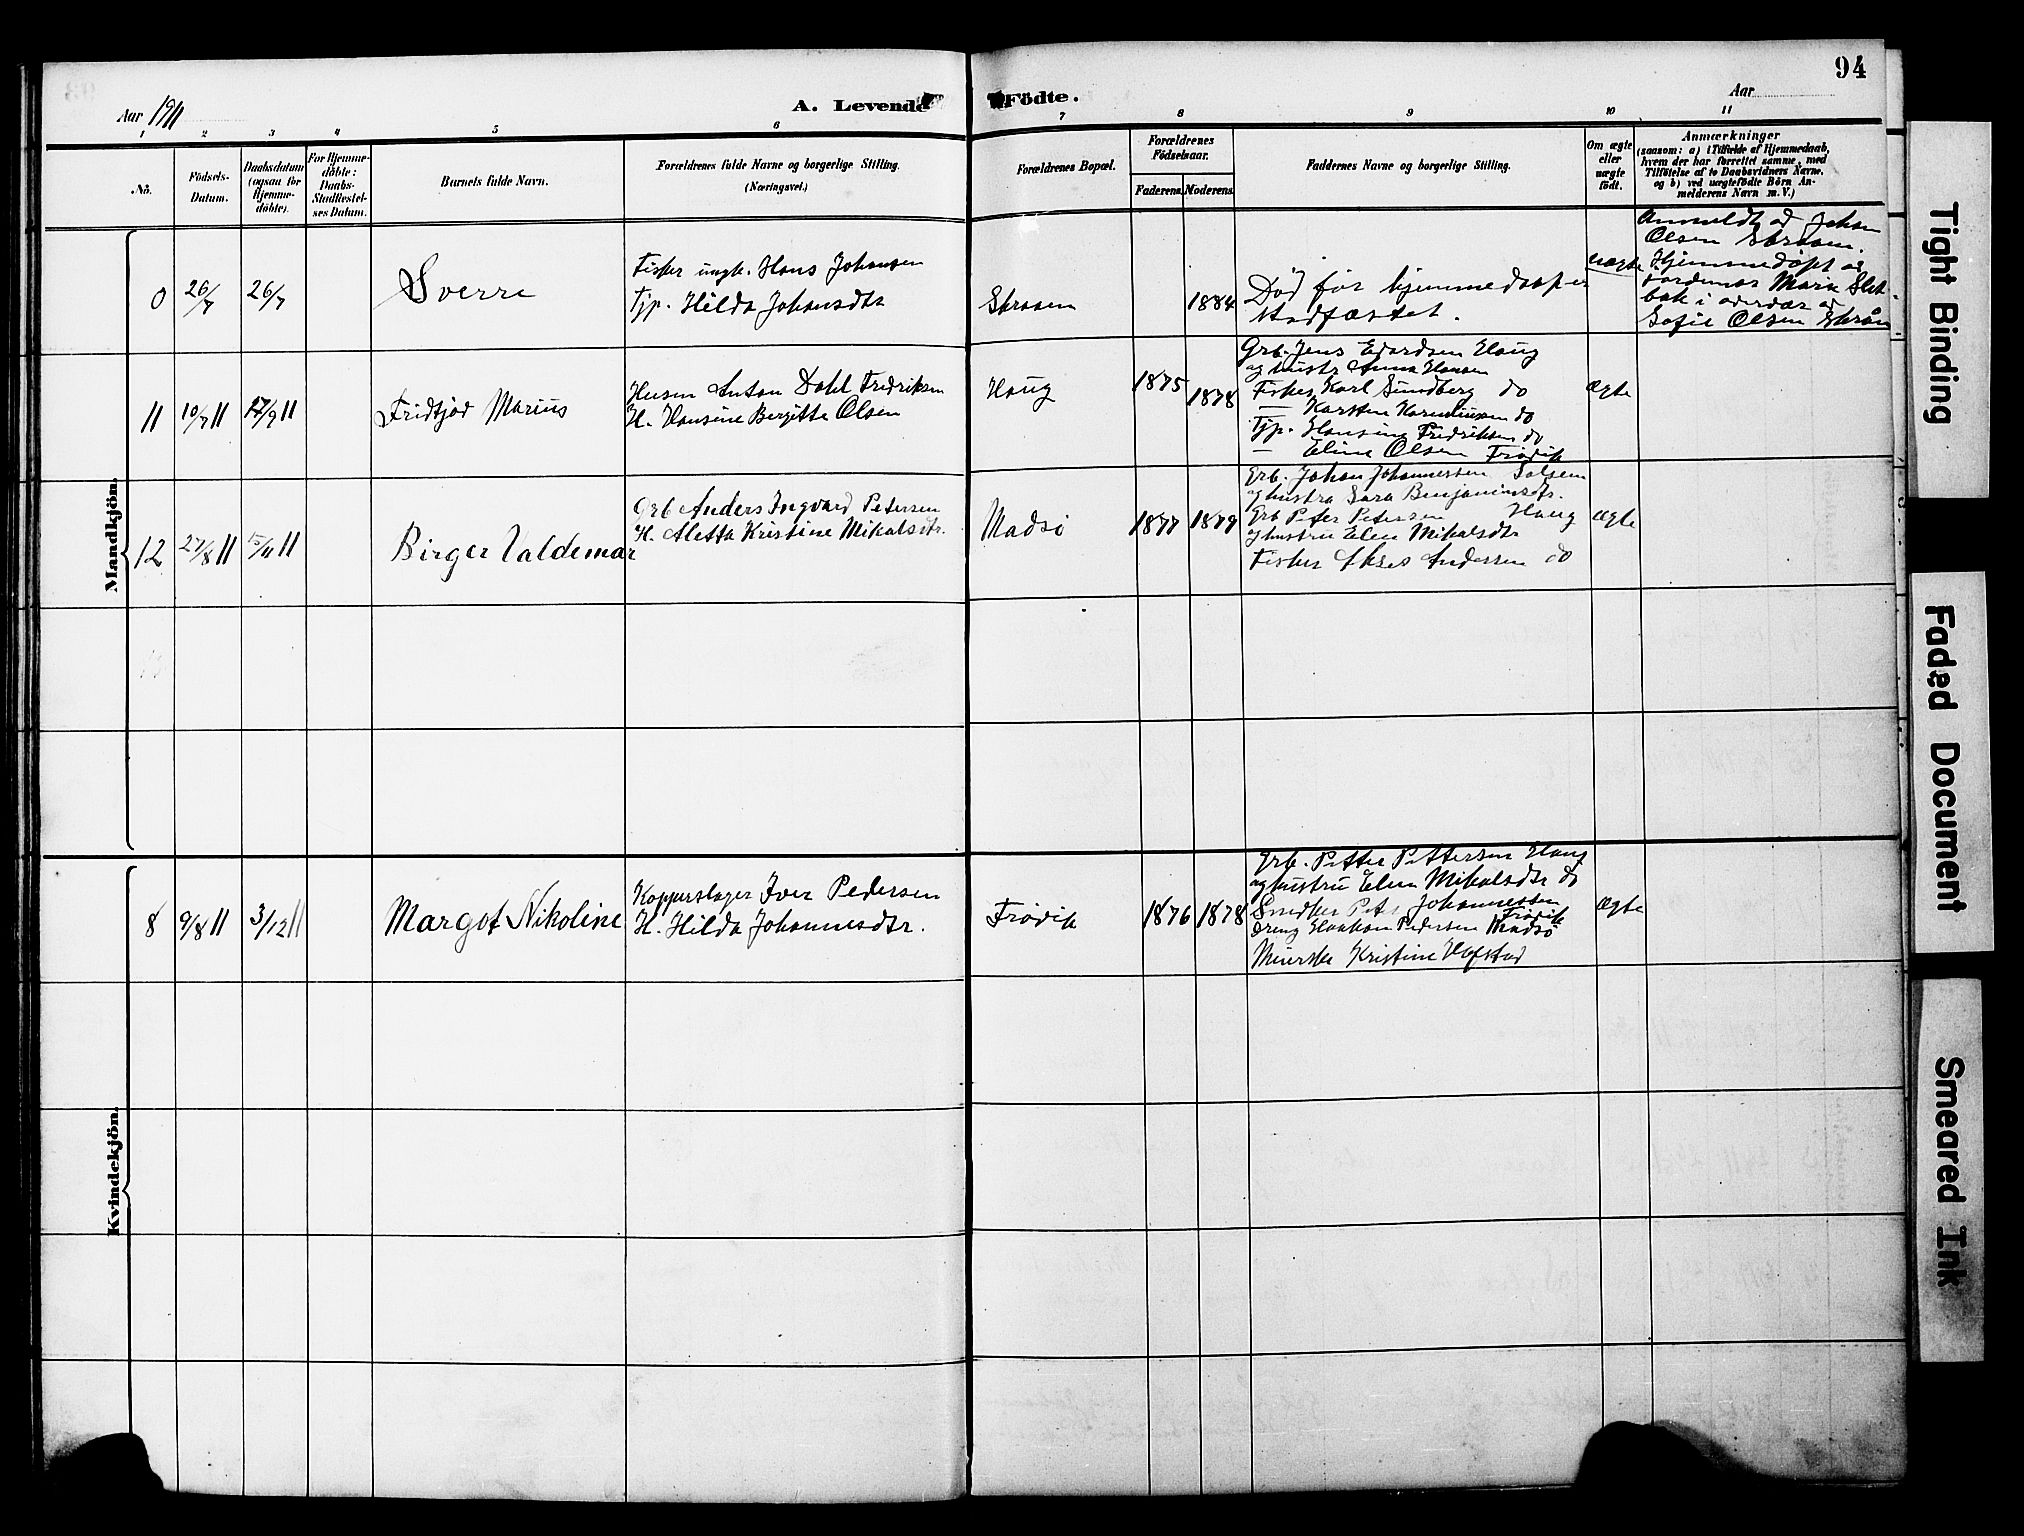 94
Aar 1911
A. Levende
Födte.
Aar
1 2 3 4 5 6 7 8 9 10 11
No.
Födsels-
Datum.
Daabsdatum
(ogsaa for
Hjemme-
döbte).
For Hjemme-
döbte:
Daabs-
Stadfæstel-
ses Datum.
Barnets fulde Navn.
Forældrenes fulde Navne og borgerlige Stilling.
(Næringsvei.)
Forældrenes Bopæl.
Forældrenes
Födselsaar.
Faderens.
Moderens.
Faddernes Navne og borgerlige Stilling.
Om ægte
eller
uægte
födt.
Anmærkninger
(saasom: a) i Tilfælde af Hjemmedaab,
hvem der har forrettet samme, med
Tilföielse af to Daabsvidners Navne,
og b) ved uægtefödte Börn An-
melderens Navn m. V.)
Mandkjön.
0
26/7
26/7
Sverre
Fisker ungk. Hans Johansen
Tjp. Hilda Johansdtr
Skraaen
1884
Död før hjemmedaapen
stadfæstet.
uægte
Anmeldt av Johan
Olsen Skraaen.
Hjemmedøpt av
jordemor Maria
i overvær av
Sofie Olsen Skråen
11
10/7 11
17/9 11
Fridtjod Marius
Husm Anton Dahl Fredriksen
H. Hansine Bergitta Olsen
Haug
1875
1878
Grb. Jens Edvardsen Haug
og hustr Anna Hansen
Fisker Karl Sundberg do
— Karsten Korneliussen do
Tjp. Hansine Fredriksen do
— Eline Olsen Frøvik
ægte
12
27/8 11
15/11 11
Birger Valdemar
Grb Anders Ingvard Petersen
H. Aletta Kristine Mikalsdtr.
Madsö
1877
1879
Grb. Johan Johannessen
og hustru Sara Benjaminsdtr.
Grb Peter Petersen Haug
og hustru Elen Mikalsdtr
Fisker Aksel Andersen do
ægte
Kvindekjön.
8
9/8 11
3/12 11
Margot Nikoline
Kopperslager Iver Pedersen
H. Hilda Johannesdtr.
Frøvik
1876
1878
Grb. Petter Pettersen Haug
og hustru Elen Mikalsdtr do
Snedker Peter Johannessen
Frøvik
Dreng Haakon Pedersen Madsö
Meierske Kristine Hofstad
ægte
Tight Binding
Faded Document
Smeared Ink